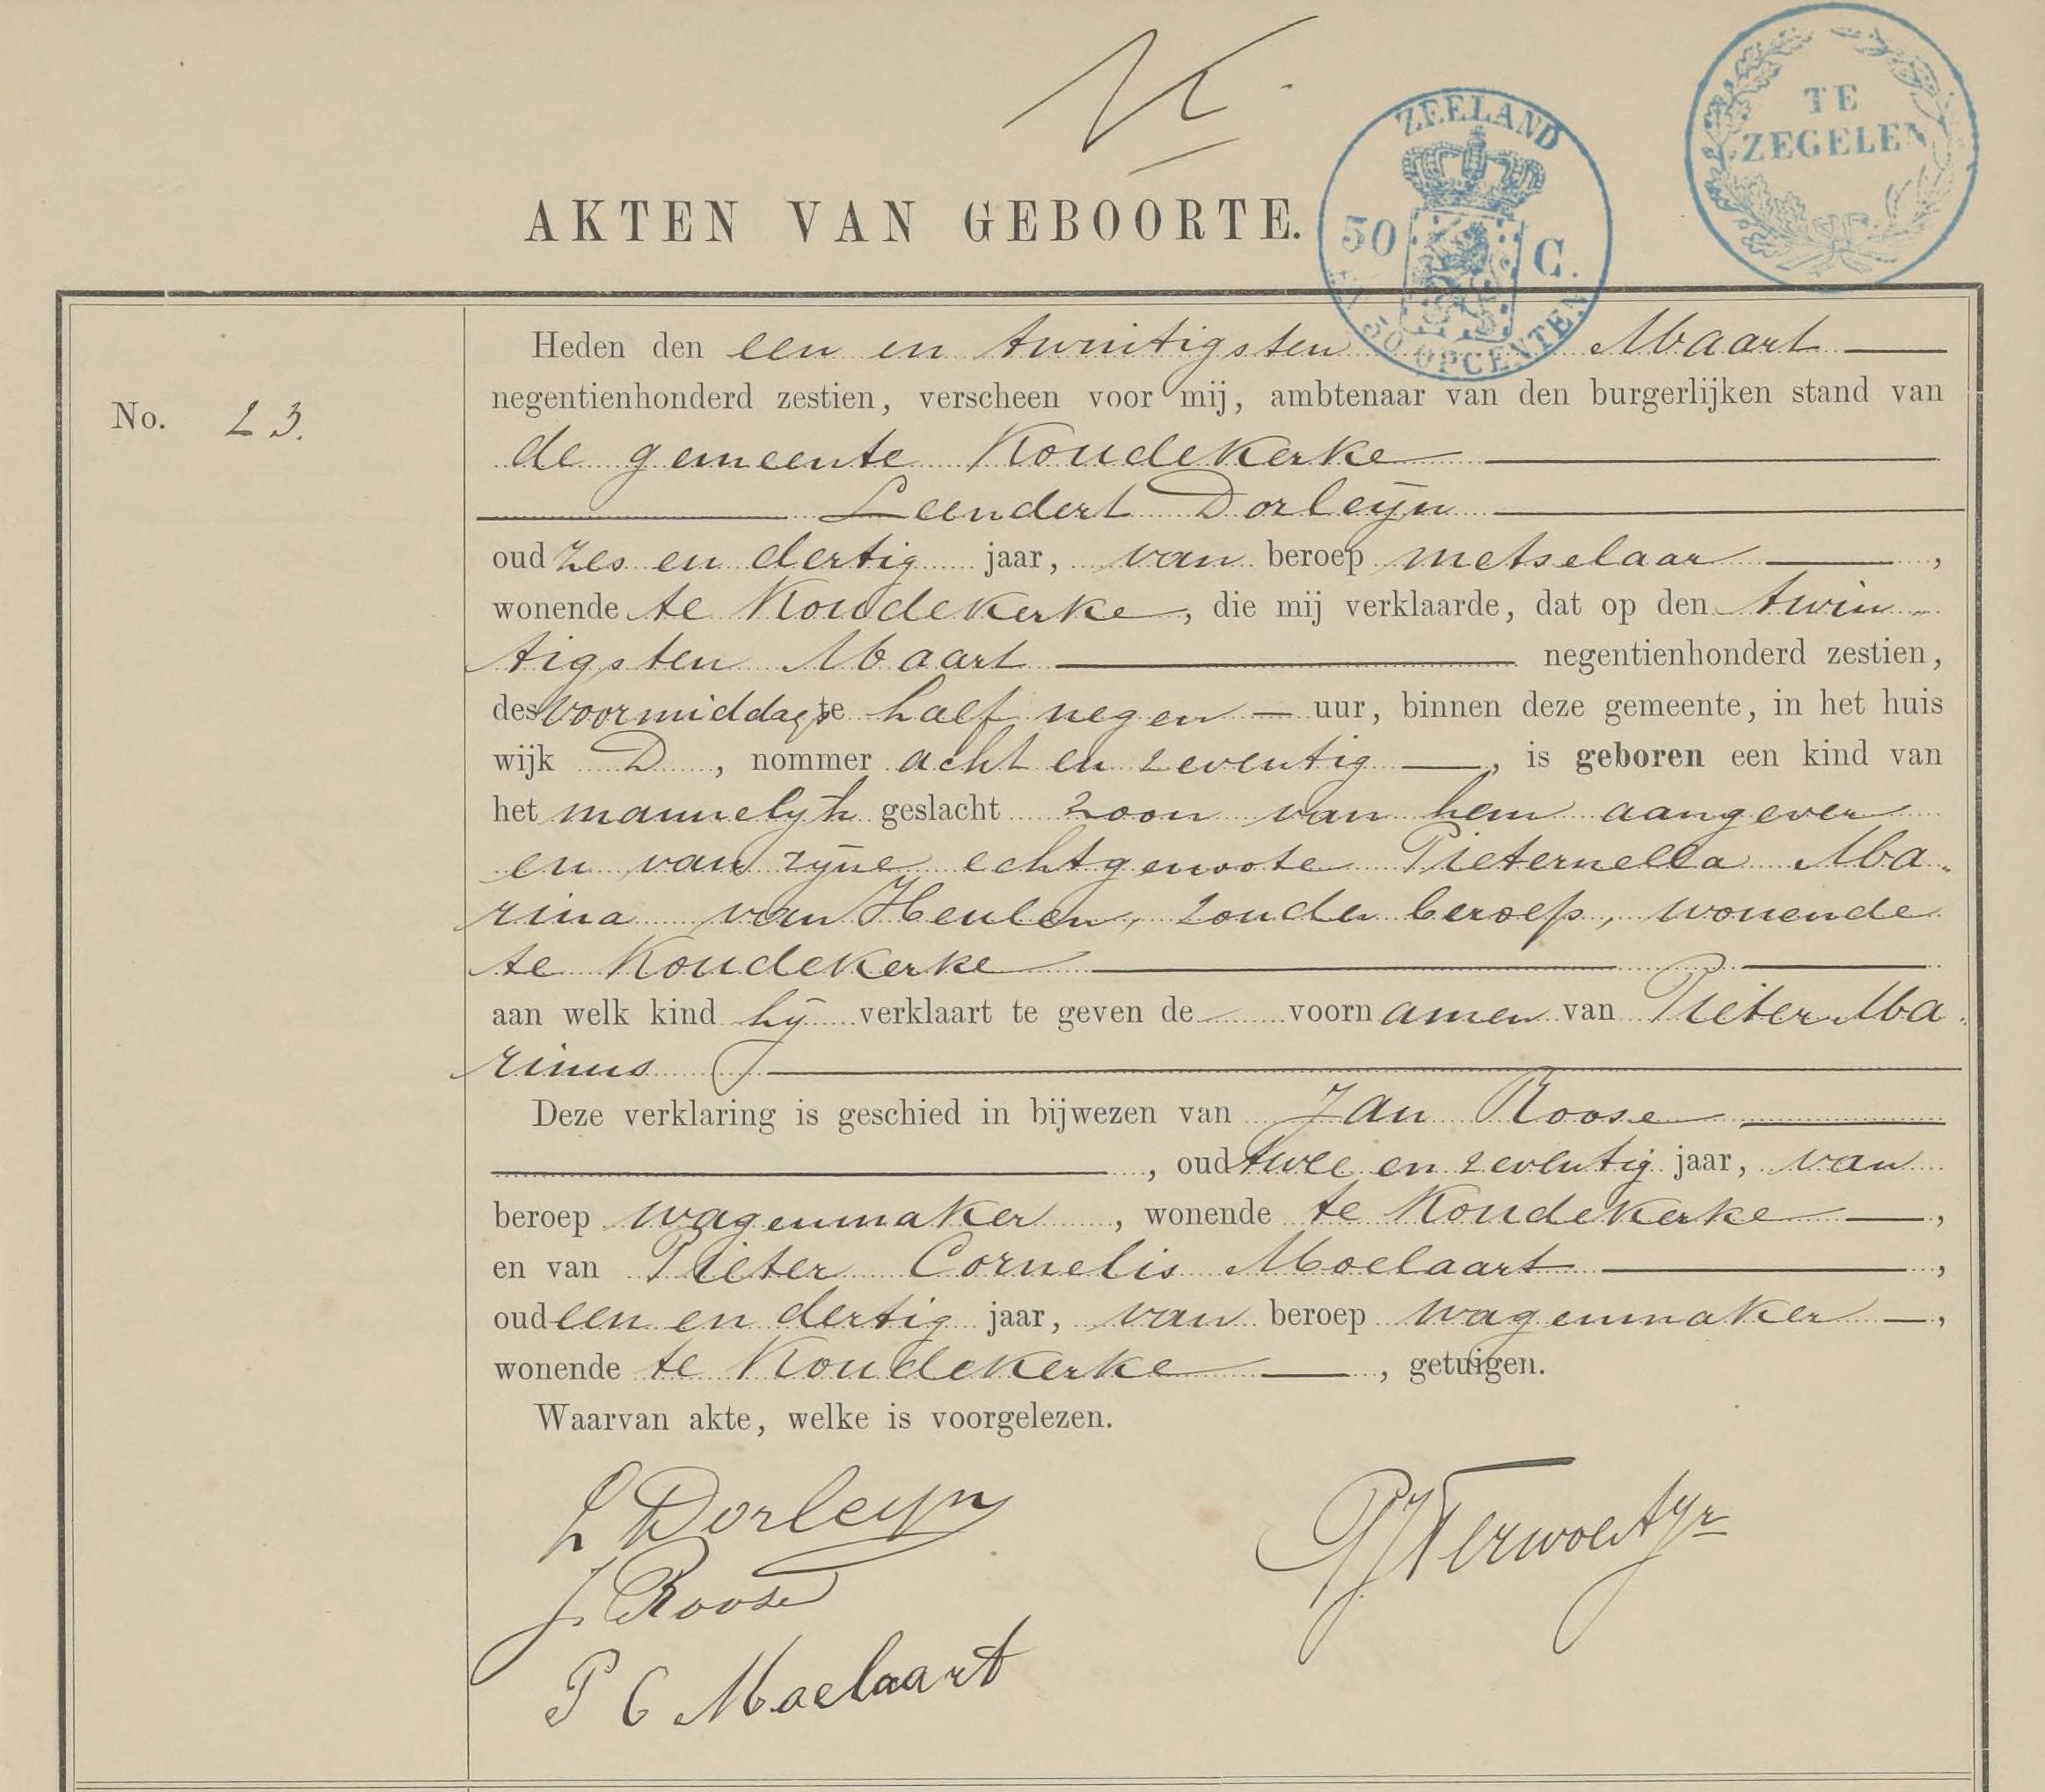 TE
ZEGELEN
ZEELAND
50 C.
50 OPCENTEN
AKTEN VAN GEBOORTE.
No. 23.
Heden den een en twintigsten Maart
negentienhonderd zestien, verscheen voor mij, ambtenaar van den burgerlijken stand van
de gemeente Koudekerke
Leendert Dorleijn
oud zes en dertig jaar, van beroep metselaar,
wonende te Koudekerke, die mij verklaarde, dat op den twin
tigsten Maart negentienhonderd zestien,
des voormiddags te half negen uur, binnen deze gemeente, in het huis
wijk D, nommer acht en zeventig, is geboren een kind van
het mannelijk geslacht zoon van hem aangever
en van zijne echtgenoote Pieternella Ma-
rina van Heulen, zonder beroep, wonende
te Koudekerke
aan welk kind hij verklaart te geven de voornamen van Pieter Ma-
rinus
Deze verklaring is geschied in bijwezen van Jan Roose
, oud twee en zeventig jaar, van
beroep wagenmaker, wonende te Koudekerke,
en van Pieter Cornelis Moelaart,
oud een en dertig jaar, van beroep wagenmaker,
wonende te Koudekerke, getuigen.
Waarvan akte, welke is voorgelezen.
L Dorleijn
J. Roose
P C Moelaart